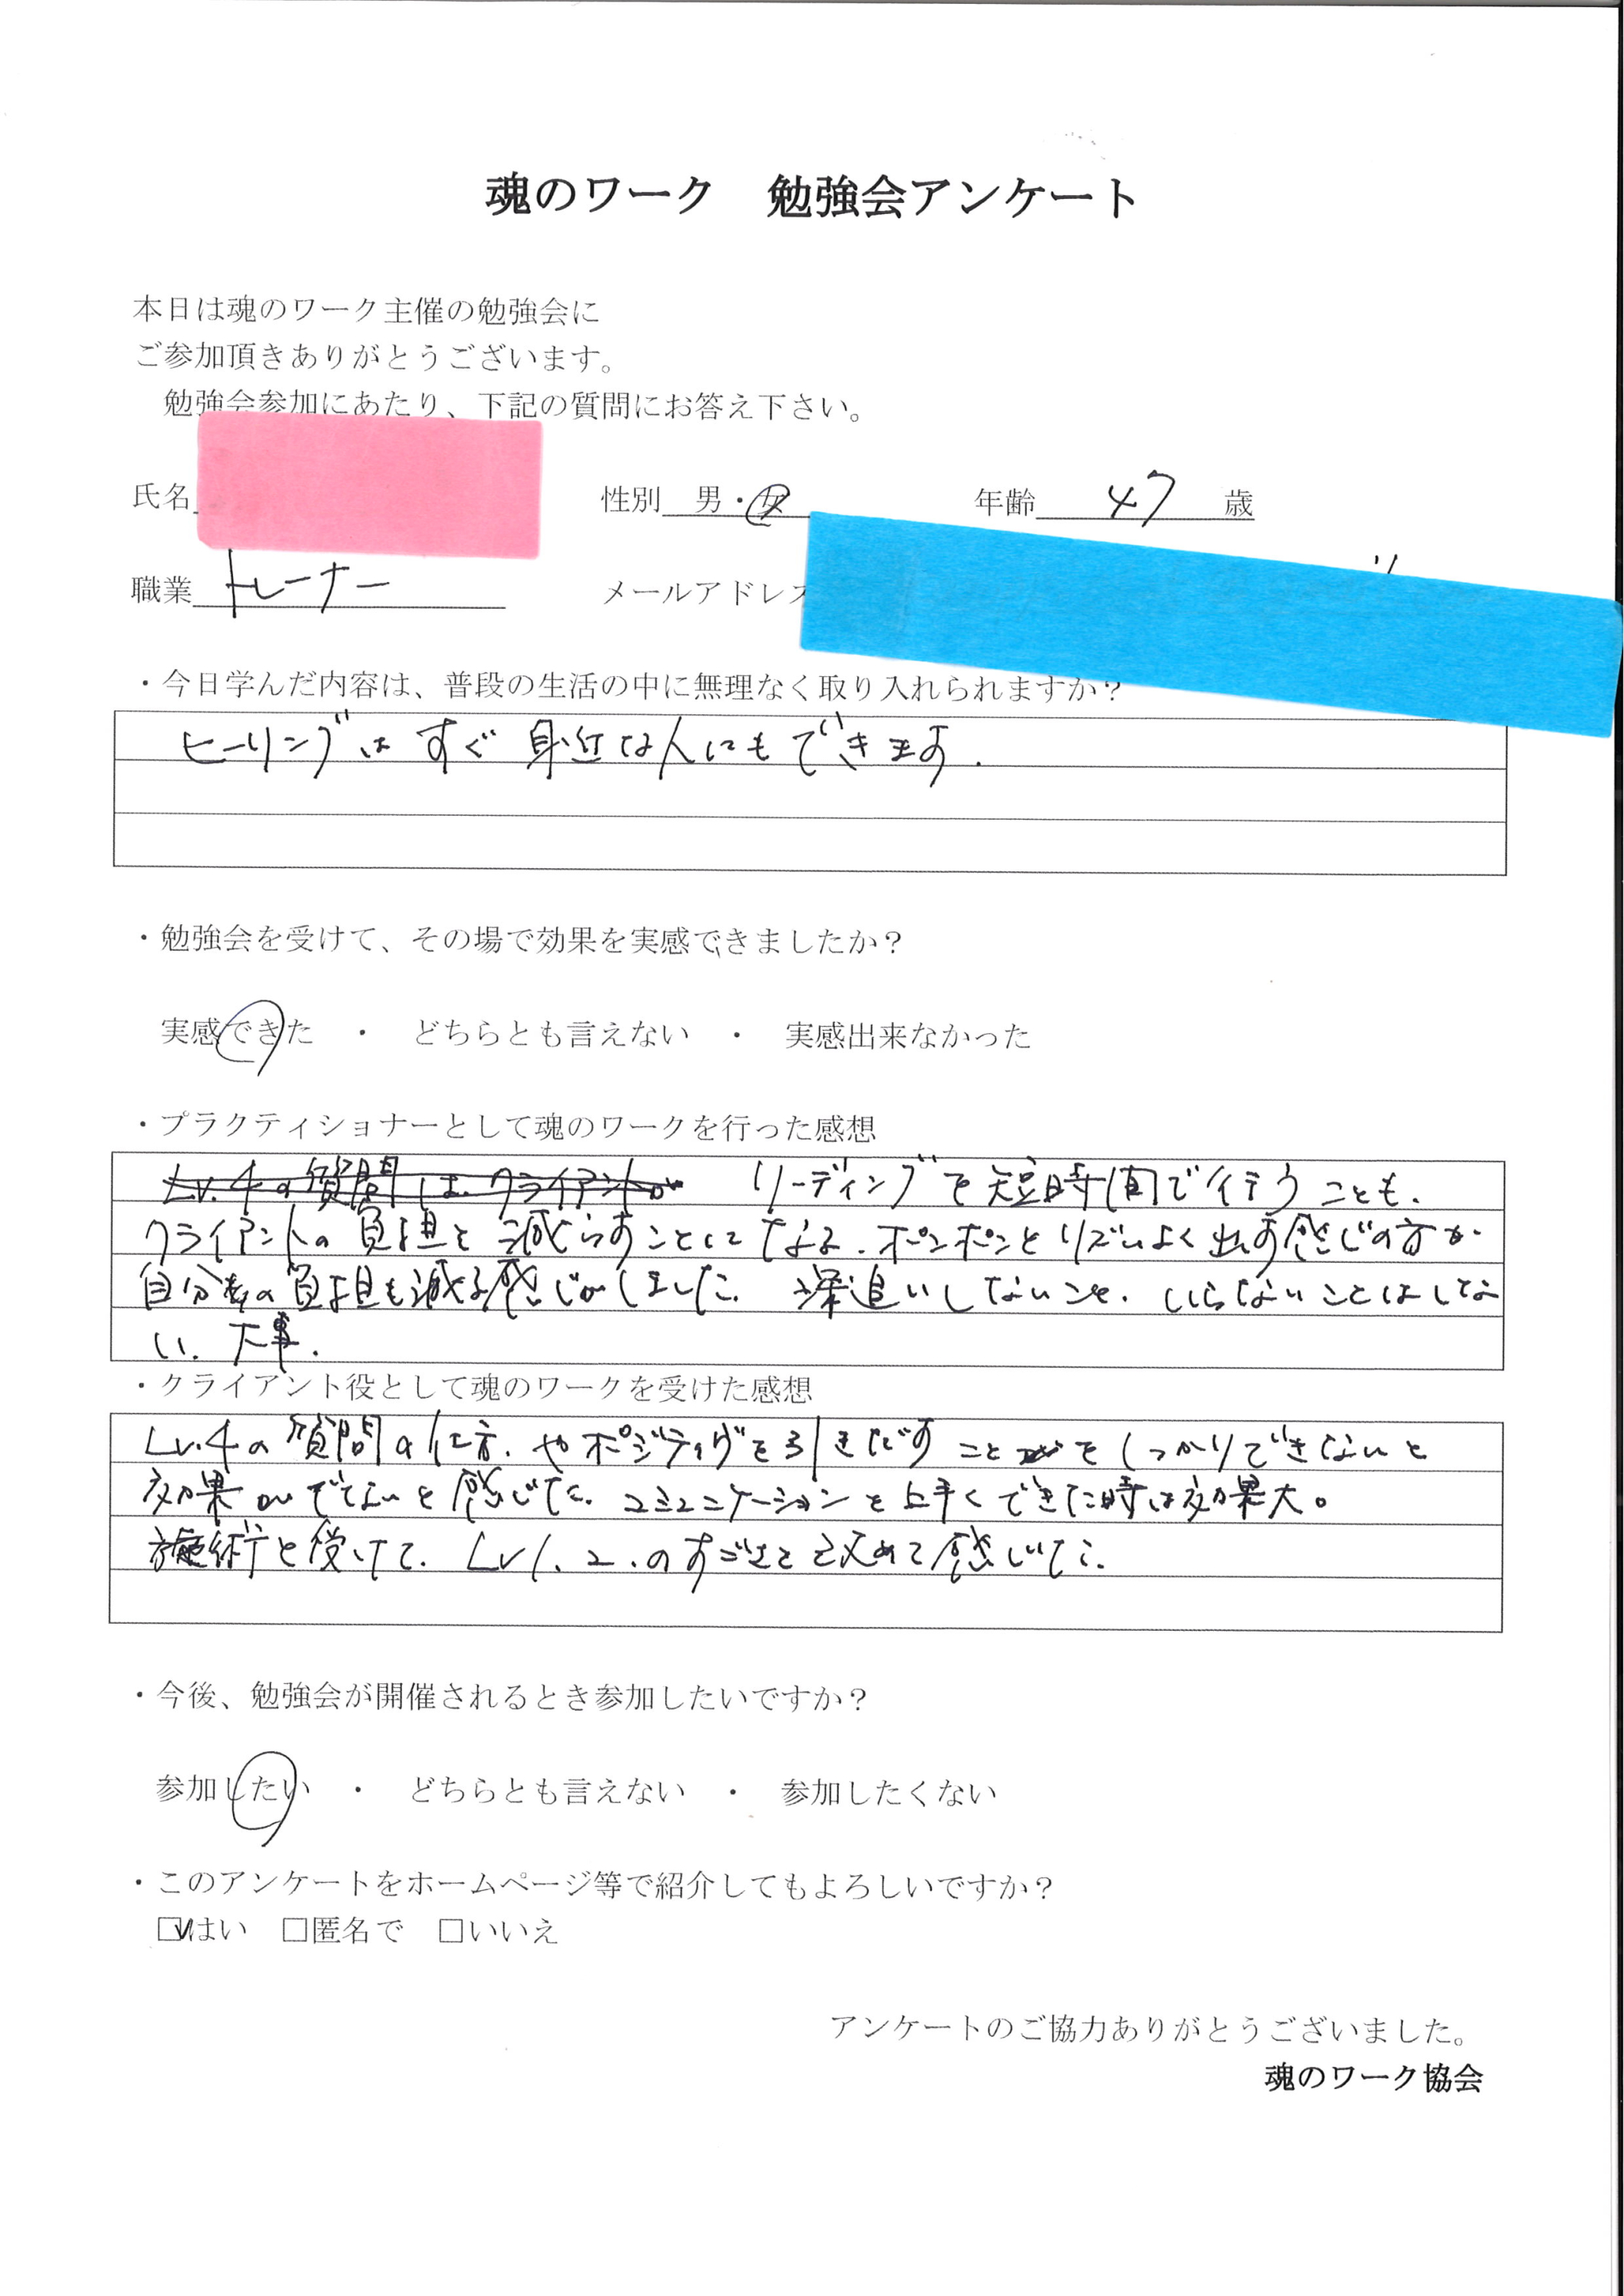 魂のワーク 勉強会アンケート
本日は魂のワーク主催の勉強会に
ご参加頂きありがとうございます。
勉強会参加にあたり、下記の質問にお答え下さい。
氏名 性別 男・女 年齢 47 歳
職業 トレーナー メールアドレス
・今日学んだ内容は、普段の生活の中に無理なく取り入れられますか？
ヒーリングは すぐ 身近な人にもできます.
・勉強会を受けて、その場で効果を実感できましたか？
実感できた ・ どちらとも言えない ・ 実感出来なかった
・プラクティショナーとして魂のワークを行った感想
Lv.4の質問は、クライアントが リーディングを短時間で行うことも、
クライアントの負担を減らすことになる. ポンポンとリズムよく出す感じの方が
自分の負担も減る感じがしました. 深追いしないこと. いらないことはしな
い. 大事.
・クライアント役として魂のワークを受けた感想
Lv.4の質問の仕方. やポジティヴを引きだすことをしっかりできないと
効果がでないと感じた. コミュニケーションを上手くできた時は効果大。
施術を受けて. Lv1. 2. のすごさを改めて感じた.
・今後、勉強会が開催されるとき参加したいですか？
参加したい ・ どちらとも言えない ・ 参加したくない
・このアンケートをホームページ等で紹介してもよろしいですか？
☑はい □匿名で □いいえ
アンケートのご協力ありがとうございました。
魂のワーク協会